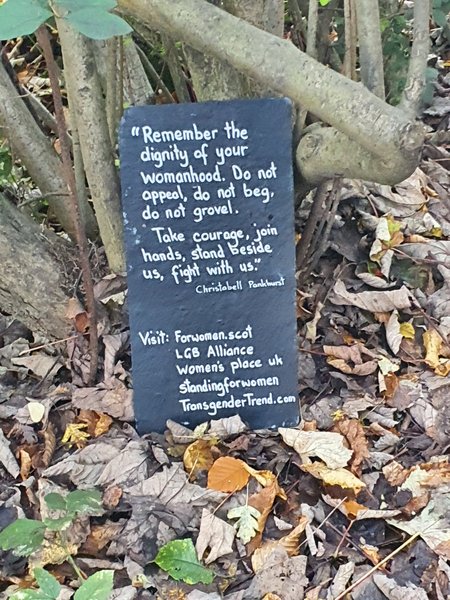 "Remember the
dignity of your
womanhood. Do not
appeal, do not beg,
do not grovel.
Take courage, join
hands, stand beside
us, fight with us."
Christabell Pankhurst
Visit: Forwomen.scot
LGB Alliance
Women's place uk
standingforwomen
TransgenderTrend.com